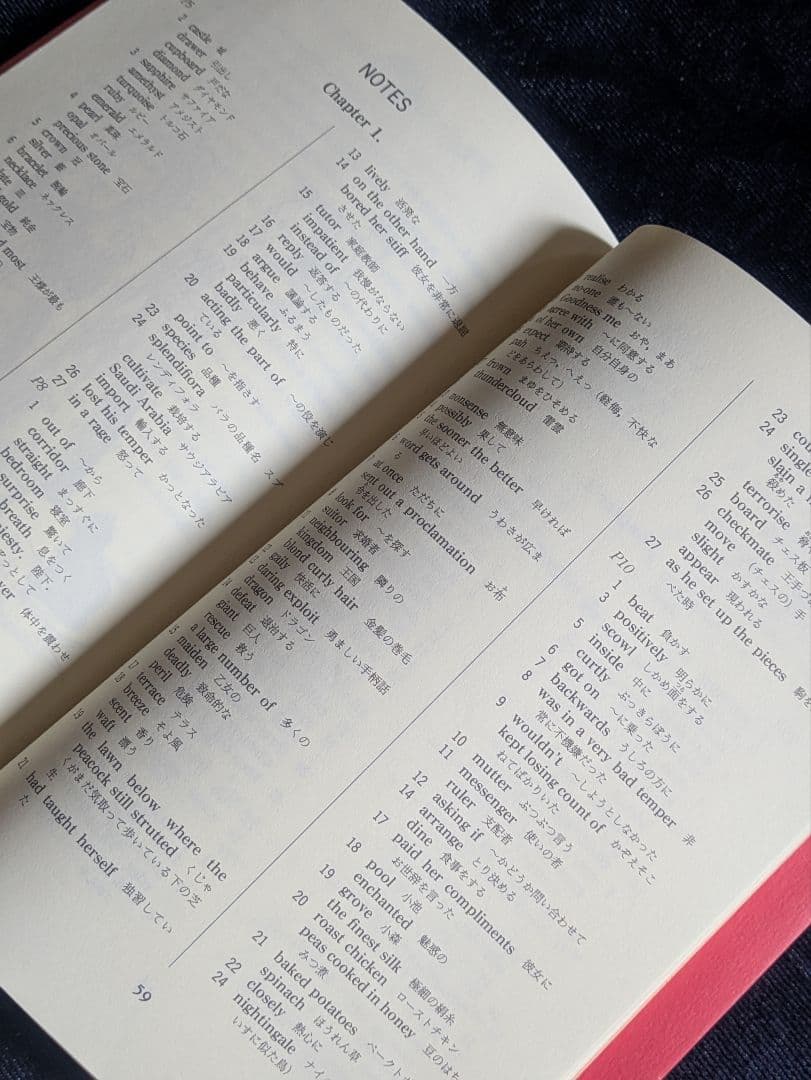 NOTES
Chapter 1.
2 castle 城
drawer 引出し
cupboard 戸だな
3 diamond ダイヤモンド
sapphire サファイア
amethyst アメジスト
turquoise トルコ石
ruby ルビー
emerald エメラルド
4 pearl 真珠
opal オパール
precious stone 宝石
5 crown 冠
silver 銀
6 bracelet 腕輪
necklace ネックレス
gold 純金
13 lively 活発な
14 on the other hand 一方
bored her stiff 彼女を非常に退屈
させた
15 tutor 家庭教師
impatient 我慢がならない
instead of 〜の代わりに
16 reply 返答する
17 would 〜したものだった
18 argue 議論する
19 behave ふるまう
particularly 特に
badly 悪く
20 acting the part of 〜の役を演じ
ている
point to 〜を指さす
23 species 品種
24 splendifiora バラの品種名 スプ
レンディフォラ
cultivate 栽培する
Saudi Arabia サウジアラビア
import 輸入する
26 lost his temper かっとなった
27 in a rage 怒って
P8
1 out of 〜から
corridor 廊下
straight まっすぐに
bedroom 寝室
surprise 驚いて
breath 息をつく
体中を震わせ
realise わかる
no-one 誰も〜ない
Goodness me おや, まあ
agree with 〜に同意する
of her own 自分自身の
expect 期待する
pah ちぇっ, へえっ (軽侮, 不快な
どをあらわして)
frown まゆをひそめる
thundercloud 雷雲
nonsense 無意味
possibly 果して
the sooner the better 早ければ
早いほどよい
word gets around うわさが広ま
る
at once ただちに
sent out a proclamation お布
令を出した
look for 〜を探す
suitor 求婚者
neighbouring 隣りの
kingdom 王国
blond curly hair 金髪の巻毛
gaily 快活に
daring exploit 勇ましい手柄話
dragon ドラゴン
14 defeat 退治する
giant 巨人
rescue 救う
15 a large number of 多くの
maiden 乙女の
deadly 致命的な
peril 危険
17 terrace テラス
18 breeze そよ風
scent 香り
waft 漂う
19 the lawn below where the
peacock still strutted くじゃ
くがまだ気取って歩いている下の芝
生
21 had taught herself 独習してい
た
59
23
24
25 terrorise
board チェス板
26 checkmate
move (チェスの) 手
slight かすかな
appear 現われる
27 as he set up the pieces
べた時
P10
1 beat 負かす
3 positively 明らかに
scowl しかめ面をする
5 inside 中に
curtly ぶっきらぼうに
6 got on 〜に乗った
7 backwards うしろの方に
8 was in a very bad temper 非
常に不機嫌だった
9 wouldn't 〜しようとしなかった
kept losing count of かぞえそこ
ねてばかりいた
10 mutter ぶつぶつ言う
11 messenger 使いの者
ruler 支配者
12 asking if 〜かどうか問い合わせて
14 arrange とり決める
dine 食事をする
17 paid her compliments 彼女に
お世辞を言った
18 pool 小池
enchanted 魅惑の
19 grove 小森
the finest silk 極細の絹糸
20 roast chicken ローストチキン
peas cooked in honey 豆のはち
みつ煮
21 baked potatoes
22 spinach ほうれん草
24 closely 熱心に
nightingale
いすに似た鳥)